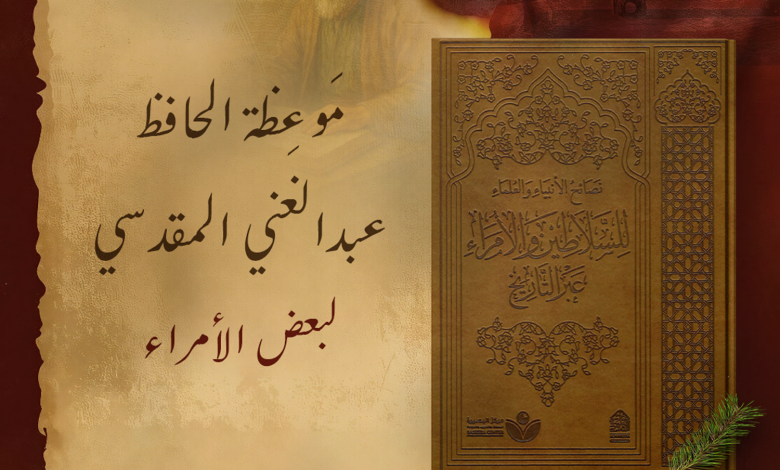 مَوعِظة الحافظ
عبدالغني المقدسي
لبعض الأمراء
نصائح الأنبياء والعلماء
للسلاطين والأمراء
عبر التاريخ